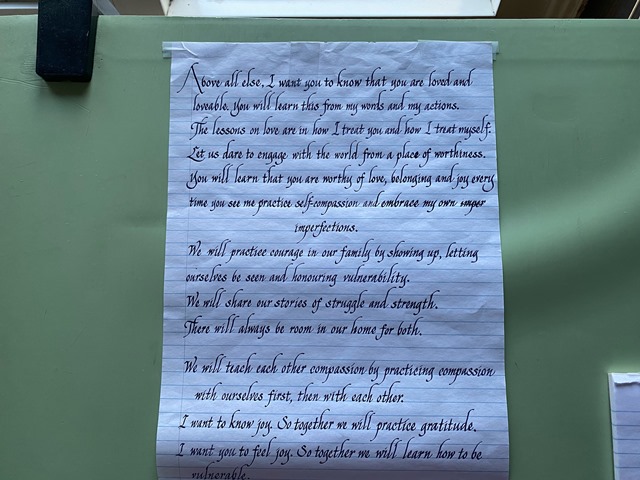 Above all else, I want you to know that you are loved and
loveable. You will learn this from my words and my actions.
The lessons on love are in how I treat you and how I treat myself.
Let us dare to engage with the world from a place of worthiness.
You will learn that you are worthy of love, belonging and joy every
time you see me practice self-compassion and embrace my own imper
imperfections.
We will practice courage in our family by showing up, letting
ourselves be seen and honouring vulnerability.
We will share our stories of struggle and strength.
There will always be room in our home for both.
We will teach each other compassion by practicing compassion
with ourselves first, then with each other.
I want to know joy. So together we will practice gratitude.
I want you to feel joy. So together we will learn how to be
vulnerable.